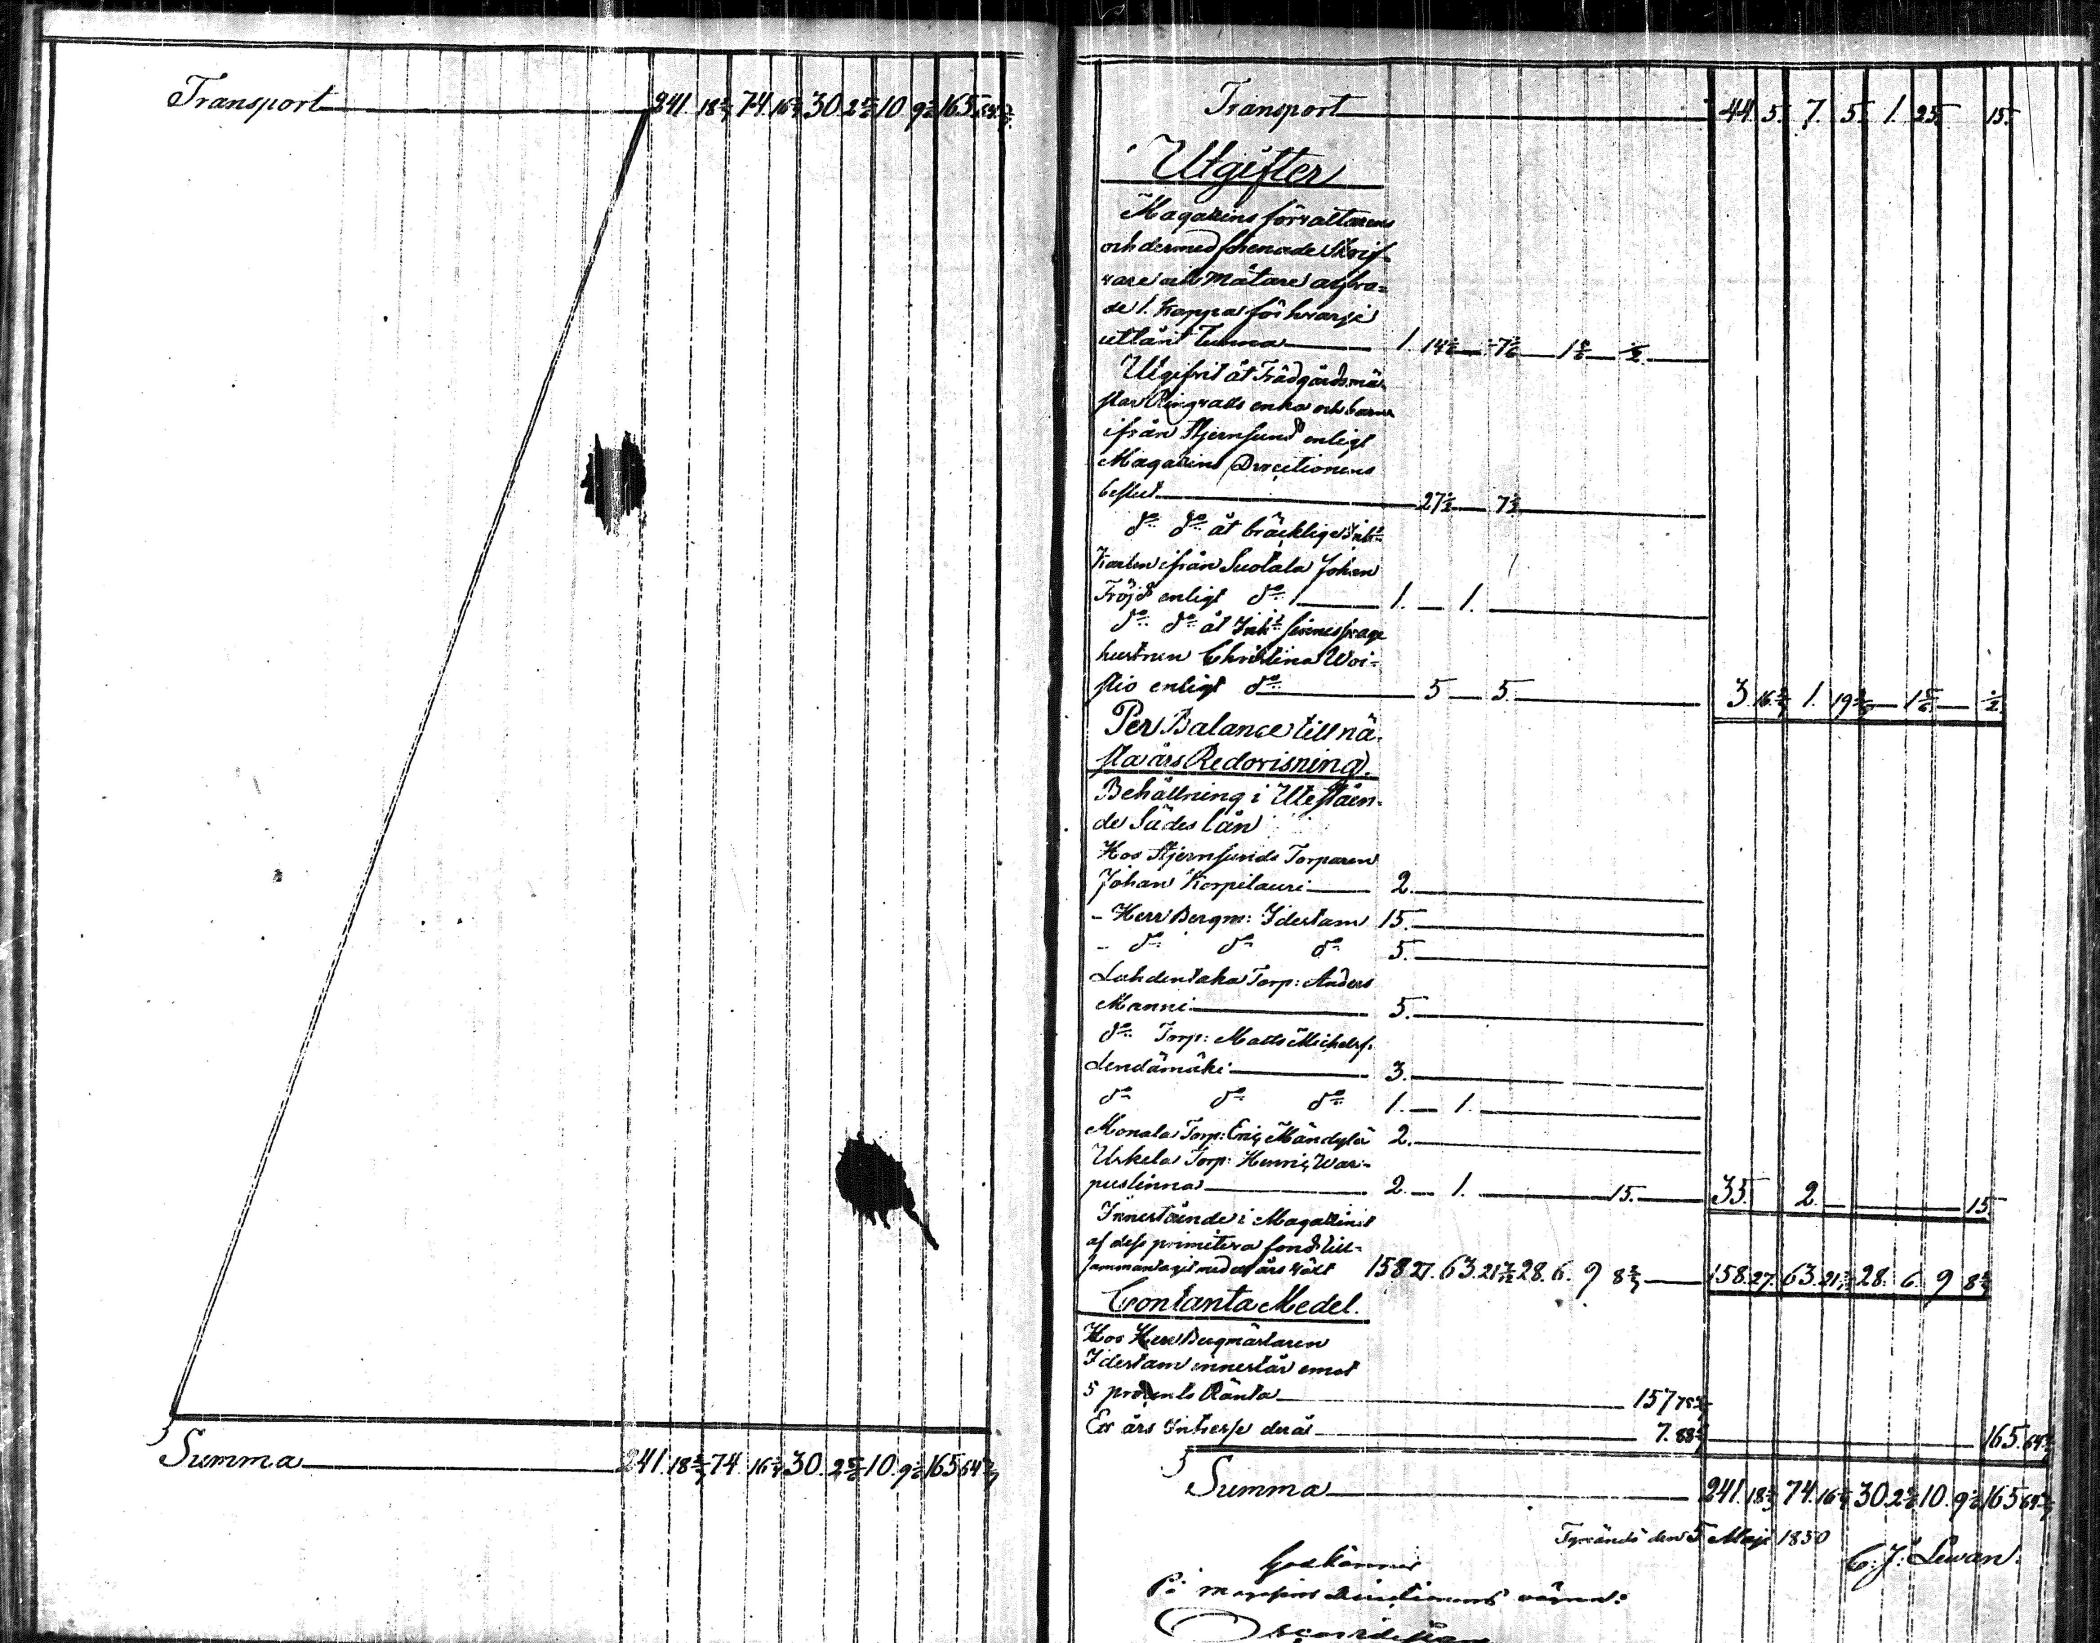 Transport 241. 18 74. 16 30. 2 10 9 165.
Summa 241. 18 74. 16 30. 2 10. 9 165 64
Transport 44. 5. 7. 5. 1. 25. 15.
Utgifter
Magasins förvaltarens
och dermed förenade Skrif-
vare och Mätare arfvo-
de 1. Kappa för hvarje
utlånt Tunna 1. 14 7 1 ½
Utgifvit åt Trädgårdsmä-
star Ringvalls enka och barn
ifrån Stjernsund enligt
Magasins Directionens
beslut 27½ 7½
do do åt bräcklige
Karlen ifrån Suotala Johan
Fröjd enligt do 1. 1.
do do åt Inh: sinnessvage
hustrun Christina Woi-
stio enligt do 5 5. 3 16 1. 19 1 ½
Per Balance till nä-
sta års Redovisning.
Behållning i Uteståen-
de Sädes lån
Hos Stjernsunds Torparen
Johan Korpilauri 2.
- Herr Bergm: Idestam 15.
- do do do 5.
Lahdentaka Torp: Anders
Manni 5.
do Torp: Matts Michelss:
Lendämäki 3.
do do do 1. 1.
Monala Torp: Eric Mändylä 2.
Urkela Torp: Henric War-
puslinna 2. 1. 15. 35. 2. 15.
Innestående i Magasinet
af dess primitiva fond till-
sammantagit med ett års växt 158. 27. 63. 21 28. 6. 9 8 158. 27. 63. 21 28. 6 9 8
Contanta Medel.
Hos Herr Bergmästaren
Idestam innestår emot
5 procents Ränta 157
Ett års Intresse derå 7. 88 165. 64
Summa 241. 18 74. 16 30. 2 10. 9 165 64
den 5 Maji 1850
C: J: Lewan.
Godkännes
På magasins Directionens vägnar: